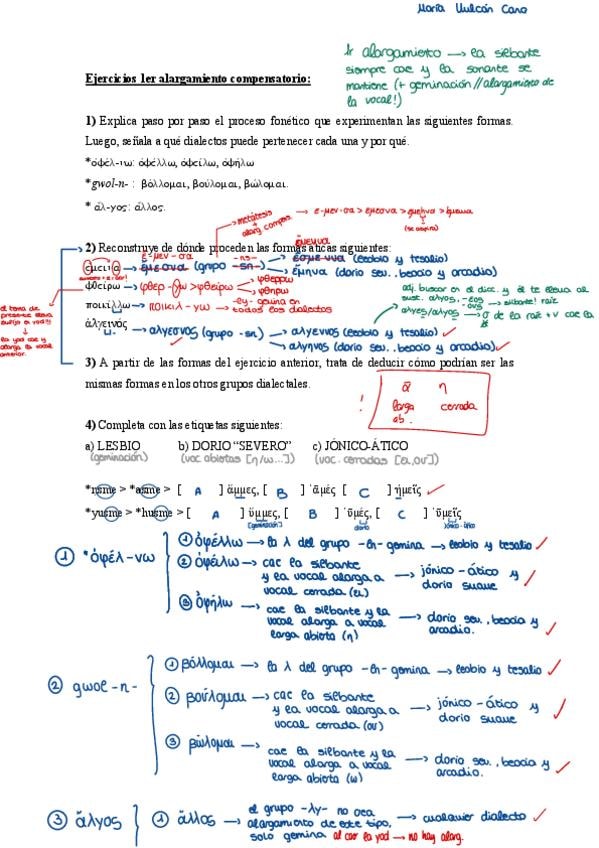 María Vulcán Cano
1r alargamiento → la silbante
siempre cae y la sonante se
mantiene (+ geminación // alargamiento de
la vocal!)
Ejercicios 1er alargamiento compensatorio:
1) Explica paso por paso el proceso fonético que experimentan las siguientes formas.
Luego, señala a qué dialectos puede pertenecer cada una y por qué.
*ὀφέλ-ιω: ὀφέλλω, ὀφείλω, ὀφήλω
*gwol-n- : βόλλομαι, βούλομαι, βώλομαι.
* ἄλ-γος: ἄλλος.
metátesis
+
alarg compen.
→ ε-μεν-σα > εμεσνα > εμηνα > ἔμεινα
(se aspira)
2) Reconstruye de dónde proceden las formas áticas siguientes:
ε-μεν-σα
-ns-
ἔμεννα
ἔμεινα → ἔμεσνα (grupo -sn-) → ἔσμεννα (lesbio y tesalio)
→ ἔμηνα (dorio sev., beocio y arcadio)
φθείρω → φθερ-jω > φθείρω → φθερρω
→ φθηρω
ποικίλλω → ποικιλ-yω → -ly- gemina en
todos los dialectos
ἀλγεινός → αλγεσνος (grupo -sn) → αλγεννος (lesbio y tesalio)
→ αλγηνος (dorio sev., beocio y arcadio) ✓
adj. buscar en el dicc. y él te lleva al
sust. αλγος, -εος
-ους → silbante! raíz
αλγες/αλγος → σ de la raíz + v cae la
s
el tema de
presente lleva
sufijo o yod!!
la yod cae y
alarga la vocal
anterior.
3) A partir de las formas del ejercicio anterior, trata de deducir cómo podrían ser las
mismas formas en los otros grupos dialectales.
! ᾱ η
larga cerrada
ab.
4) Completa con las etiquetas siguientes:
a) LESBIO b) DORIO “SEVERO” c) JÓNICO-ÁTICO
(geminación) (voc. abiertas [η/ω...]) (voc. cerradas [ει,ου])
*nsme > *asme > [ A ] ἄμμες, [ B ] ᾿ἁμές [ C ] ἡμεῖς ✓
*yusme > *husme > [ A ] ὔμμες, [ B ] ᾿ὑμές, [ C ] ᾿ὑμεῖς
[geminación] dorio jónico-ático
① *ὀφέλ-νω
① ὀφέλλω → la λ del grupo -ln- gemina → lesbio y tesalio ✓
② ὀφείλω → cae la silbante
y la vocal alarga a
vocal cerrada (ει)
→ jónico-ático y
dorio suave ✓
③ ὀφήλω → cae la silbante y la
vocal alarga a vocal
larga abierta (η)
→ dorio sev., beocio y
arcadio. ✓
② gwol-n-
① βόλλομαι → la λ del grupo -ln- gemina → lesbio y tesalio ✓
② βούλομαι → cae la silbante
y la vocal alarga a
vocal cerrada (ου)
→ jónico-ático y
dorio suave ✓
③ βώλομαι → cae la silbante y la
vocal alarga a vocal
larga abierta (ω)
→ dorio sev., beocio y
arcadio. ✓
③ ἄλyος
① ἄλλος → el grupo -λy- no crea
alargamiento de este tipo,
solo gemina al caer la yod → no hay alarg.
→ cualquier dialecto ✓